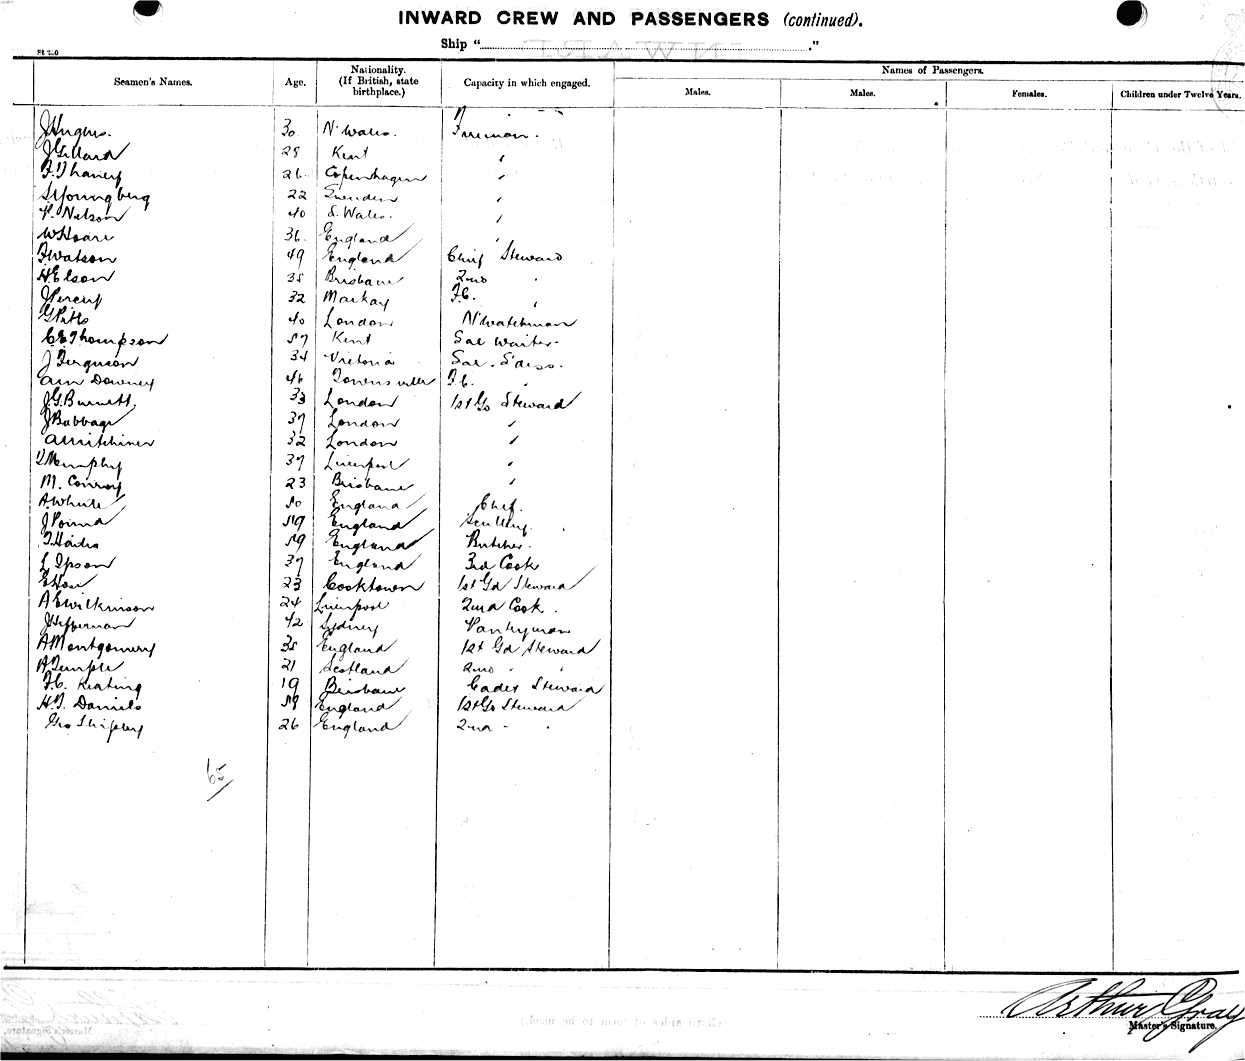 INWARD CREW AND PASSENGERS (continued).
Ship " ."
Seamen's Names. Age. Nationality. (If British, state birthplace.) Capacity in which engaged. Names of Passengers.
Males. Males. Females. Children under Twelve Years.
J Hughes. 30 N. Wales. Fireman.
J Gillard 28 Kent "
26 Copenhagen "
S Youngberg 22 Sweden "
P. Nelson 40 S. Wales. "
W Hoare 36 England "
F Watson 49 England Chief Steward
H Elson 38 Brisbane 2nd "
J Percy 32 Mackay F.C. "
G Pitts 40 London N' Watchman
C E Thompson 57 Kent Sal Waiter
J Ferguson 34 Victoria Sal. S'dess.
Downey 46 Townsville F.C. "
J G Burnett. 33 London 1st Gd Steward
J Babbage 37 London "
A Mitchiner 32 London "
Murphy 37 Liverpool "
M. Conroy 23 Brisbane "
A White 50 England Chef.
J Pound 59 England Scullery.
T. Hardie 59 England Butcher.
Ipson 37 England 3rd Cook
E How 23 Cooktown 1st Gd Steward
A E Wilkinson 24 Liverpool 2nd Cook.
J Heffernan 42 Sydney Pantryman
A Montgomery 38 England 1st Gd Steward
A Temple 21 Scotland 2nd " "
F. C. Keating 19 Brisbane Cadet Steward
H. T. Daniels 59 England 1st Gd Steward
Geo Shipley 26 England 2nd " "
65
Arthur Gray
Master's Signature.